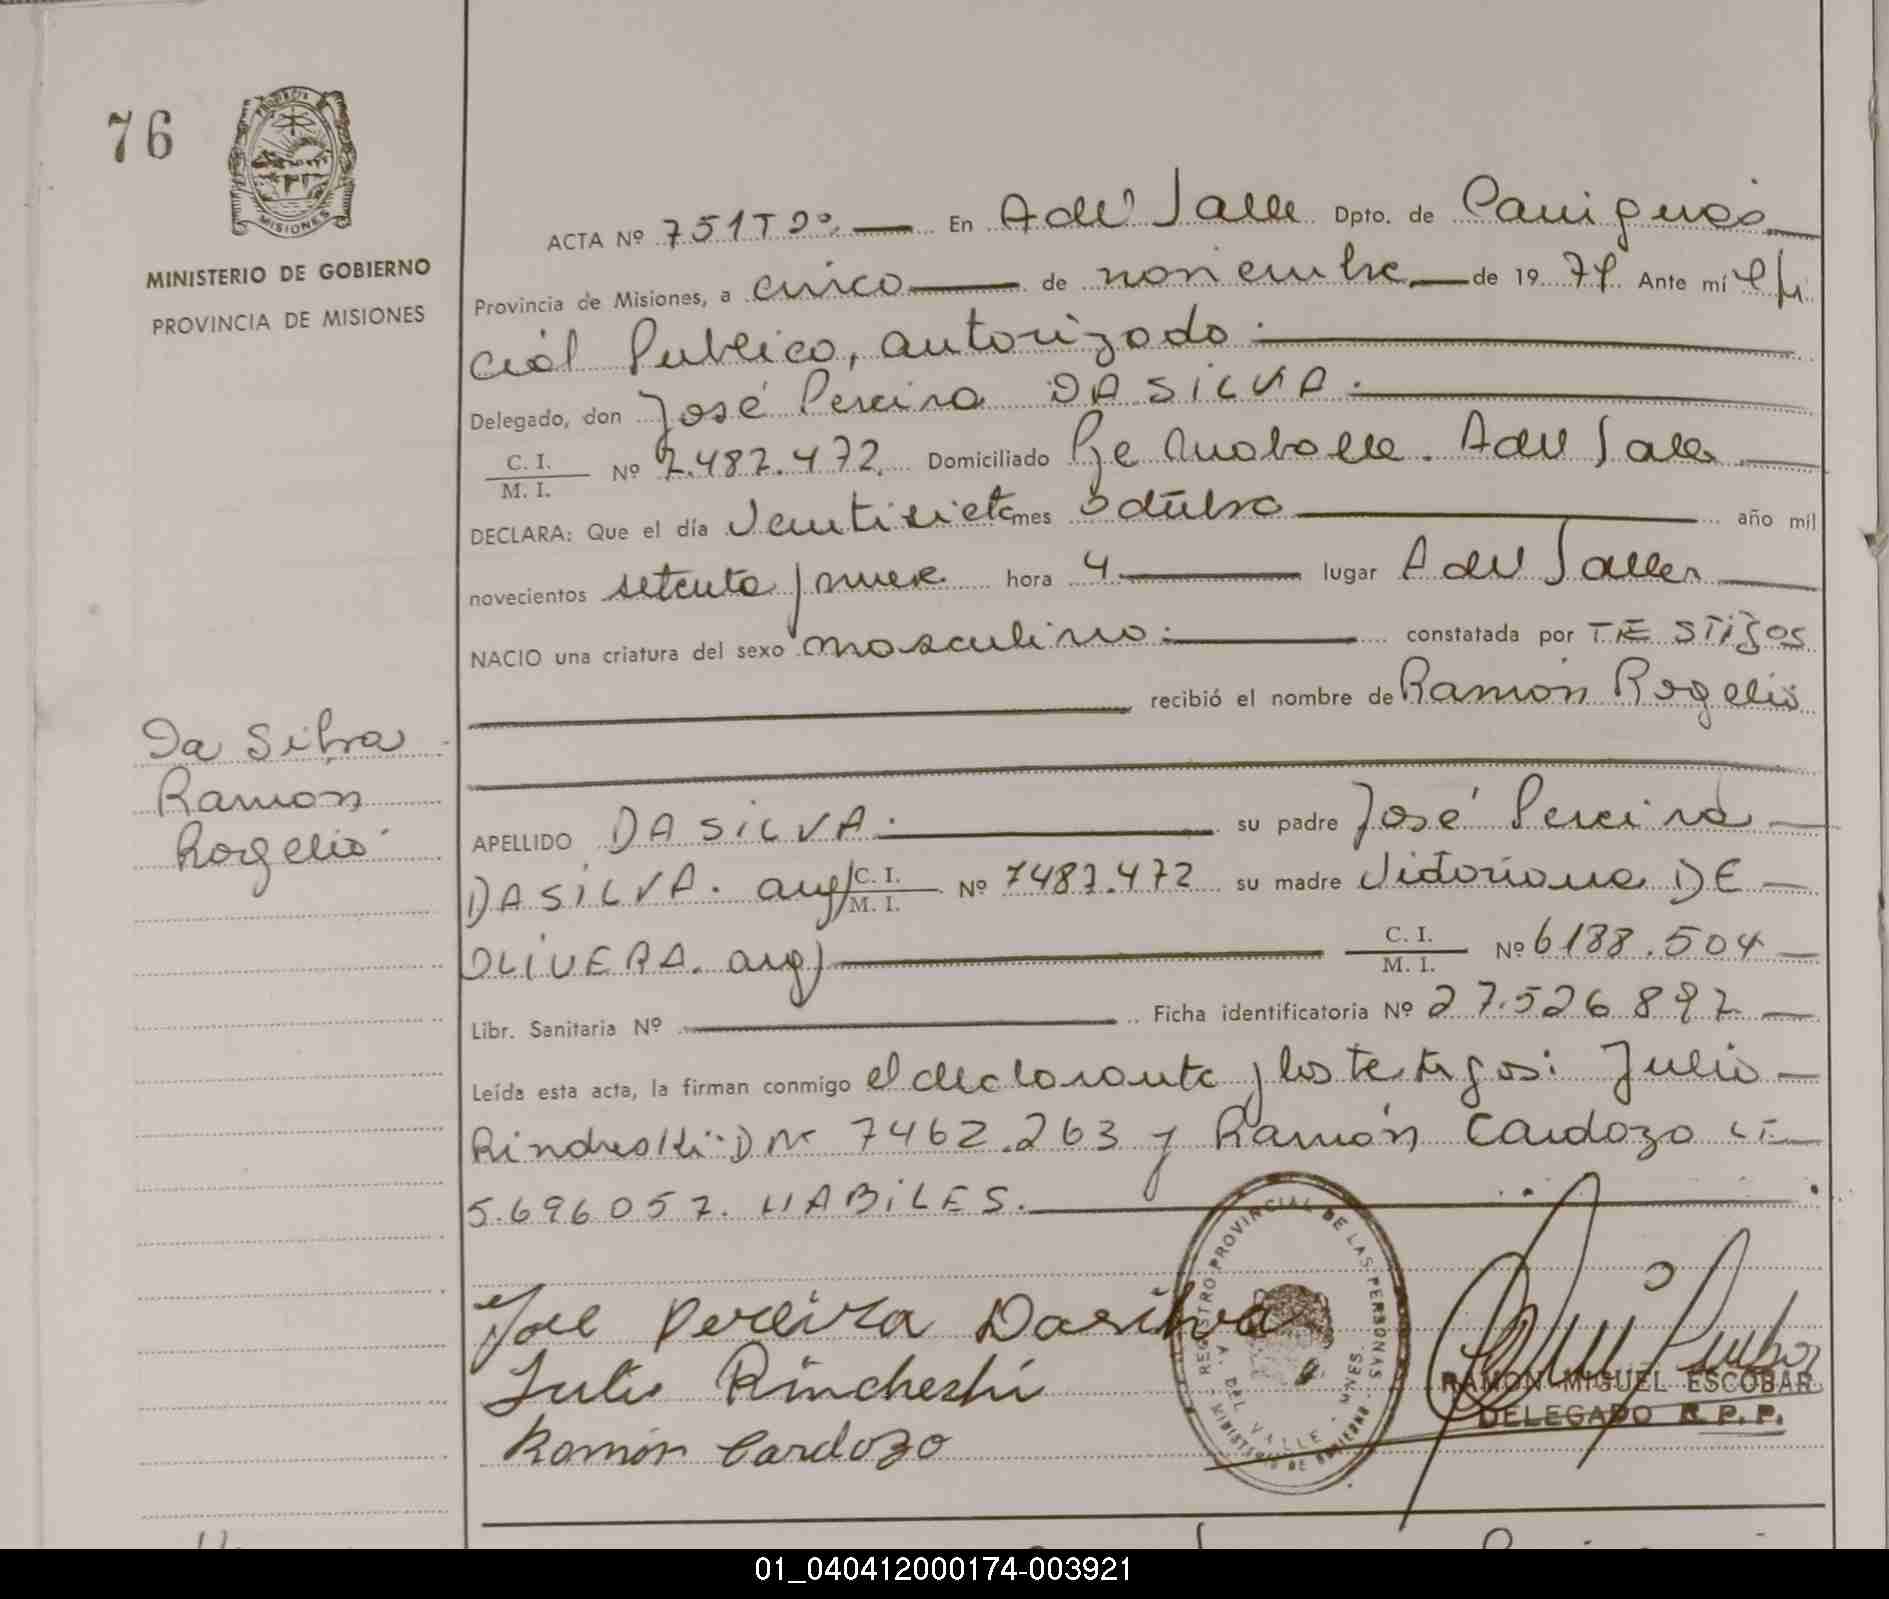 76
PROVINCIA
MISIONES
MINISTERIO DE GOBIERNO
PROVINCIA DE MISIONES
ACTA Nº 751 T 2º. En A del Valle Dpto. de Cainguás
Provincia de Misiones, a cinco de noviembre de 1979. Ante mí Ofi
cial Publico, autorizado.
Delegado, don José Pereira DA SILVA.
C. I.
M. I. Nº 7.487.472 Domiciliado A del Valle
DECLARA: Que el día Veintisiete mes octubre año mil
novecientos setenta y nueve hora 4 lugar A del Valle
NACIO una criatura del sexo masculino. constatada por TESTIGOS
recibió el nombre de Ramón Rogelio
Da Silva
Ramón
Rogelio
APELLIDO DA SILVA. su padre José Pereira
DA SILVA. arg) C. I. M. I. Nº 7487.472 su madre Victoriana DE
OLIVERA. arg) C. I. M. I. Nº 6188.504
Libr. Sanitaria Nº Ficha identificatoria Nº 27.526.897
Leída esta acta, la firman conmigo el declarante y los testigos: Julio
Rindreski. DNI 7462.263 y Ramón Cardozo
5.696057. HABILES.
José Pereira Dasilva
Julio Rincheski
Ramón Cardozo
REGISTRO PROVINCIAL DE LAS PERSONAS
A. DEL VALLE - MNES.
MINISTERIO DE GOBIERNO
RAMON MIGUEL ESCOBAR
DELEGADO R. P. P.
01_040412000174-003921